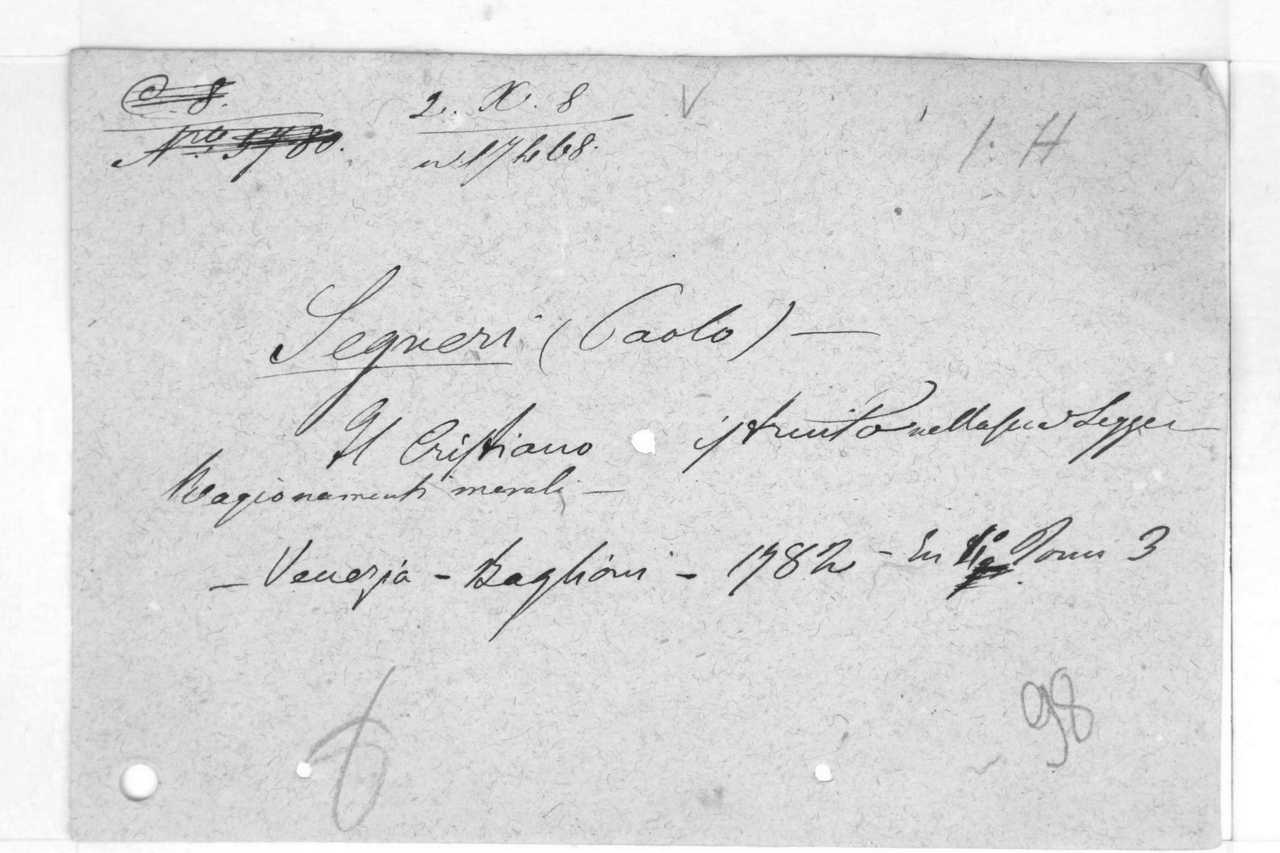 C. 8. 2. X. 8
Nro. 5780. n 17468.
1. H
Segneri (Paolo) —
Il Cristiano istruito nella sua Legge
Ragionamenti morali —
— Venezia - Baglioni - 1782 - In Tomi 3
98